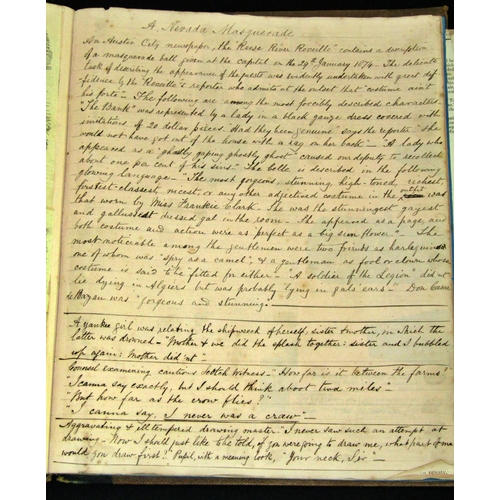 A. Nevada Masquerade
An Austin City newspaper, the "Reese River Reveille" contains a description
of a masquerade ball given at the capital on the 29th January 1874. The delicate
task of describing the appearance of the guests was evidently undertaken with great dif-
fidence by the "Reveille's" reporter who admits at the outset that "costume aint
his forte" – The following are among the most forcibly described characters –
"The Bank" was represented by a lady in a black gauze dress covered with
imitations of 20 dollar pieces. Had they been genuine" says the reporter "she
would not have got out of the house with a rag on her back" – A lady who
appeared as a "ghastly gaping ghostly ghost" caused our deputy to recollect
about one per cent of his sins – The belle is described in the following
glowing language – "The most gorgeous, stunning, high-toned, richest
forstest-classest, nicest, or any other adjectived costume in the outfit was
that worn by Miss Frankie Clark – She was the stunningest gayest
and galliusest dressed gal in the room – She appeared as a page, and
both costume and action were as perfect as a big sun flower" – The
most noticeable among the gentlemen were two forms as harlequins
one of whom was "spry as a camel", & a gentleman as fool or clown whose
costume is said to be fitted for either – "A soldier of the Legion" did not
lie dying in Algiers but was probably "lying in gals' ears" – Don Cæsar
de Bazan was "gorgeous and stunning."
A yankee girl was relating the shipwreck of herself, sister & mother, in which the
latter was drowned – "Mother & we did the splash together: sister and I bubbled
up again: Mother did'nt" –
Counsel examining cautious Scotch Witness – "How far is it between the farms?"
"I canna say exactly, but I should think aboot twa miles" –
"But how far as the crow flies?"
"I canna say, I never was a craw" –
Aggravating & ill tempered drawing master. "I never saw such an attempt at
drawing – Now I shall just like to be told, if you were going to draw me, what part of me
would you draw first?" Pupil, with a meaning look, "Your neck, Sir" –